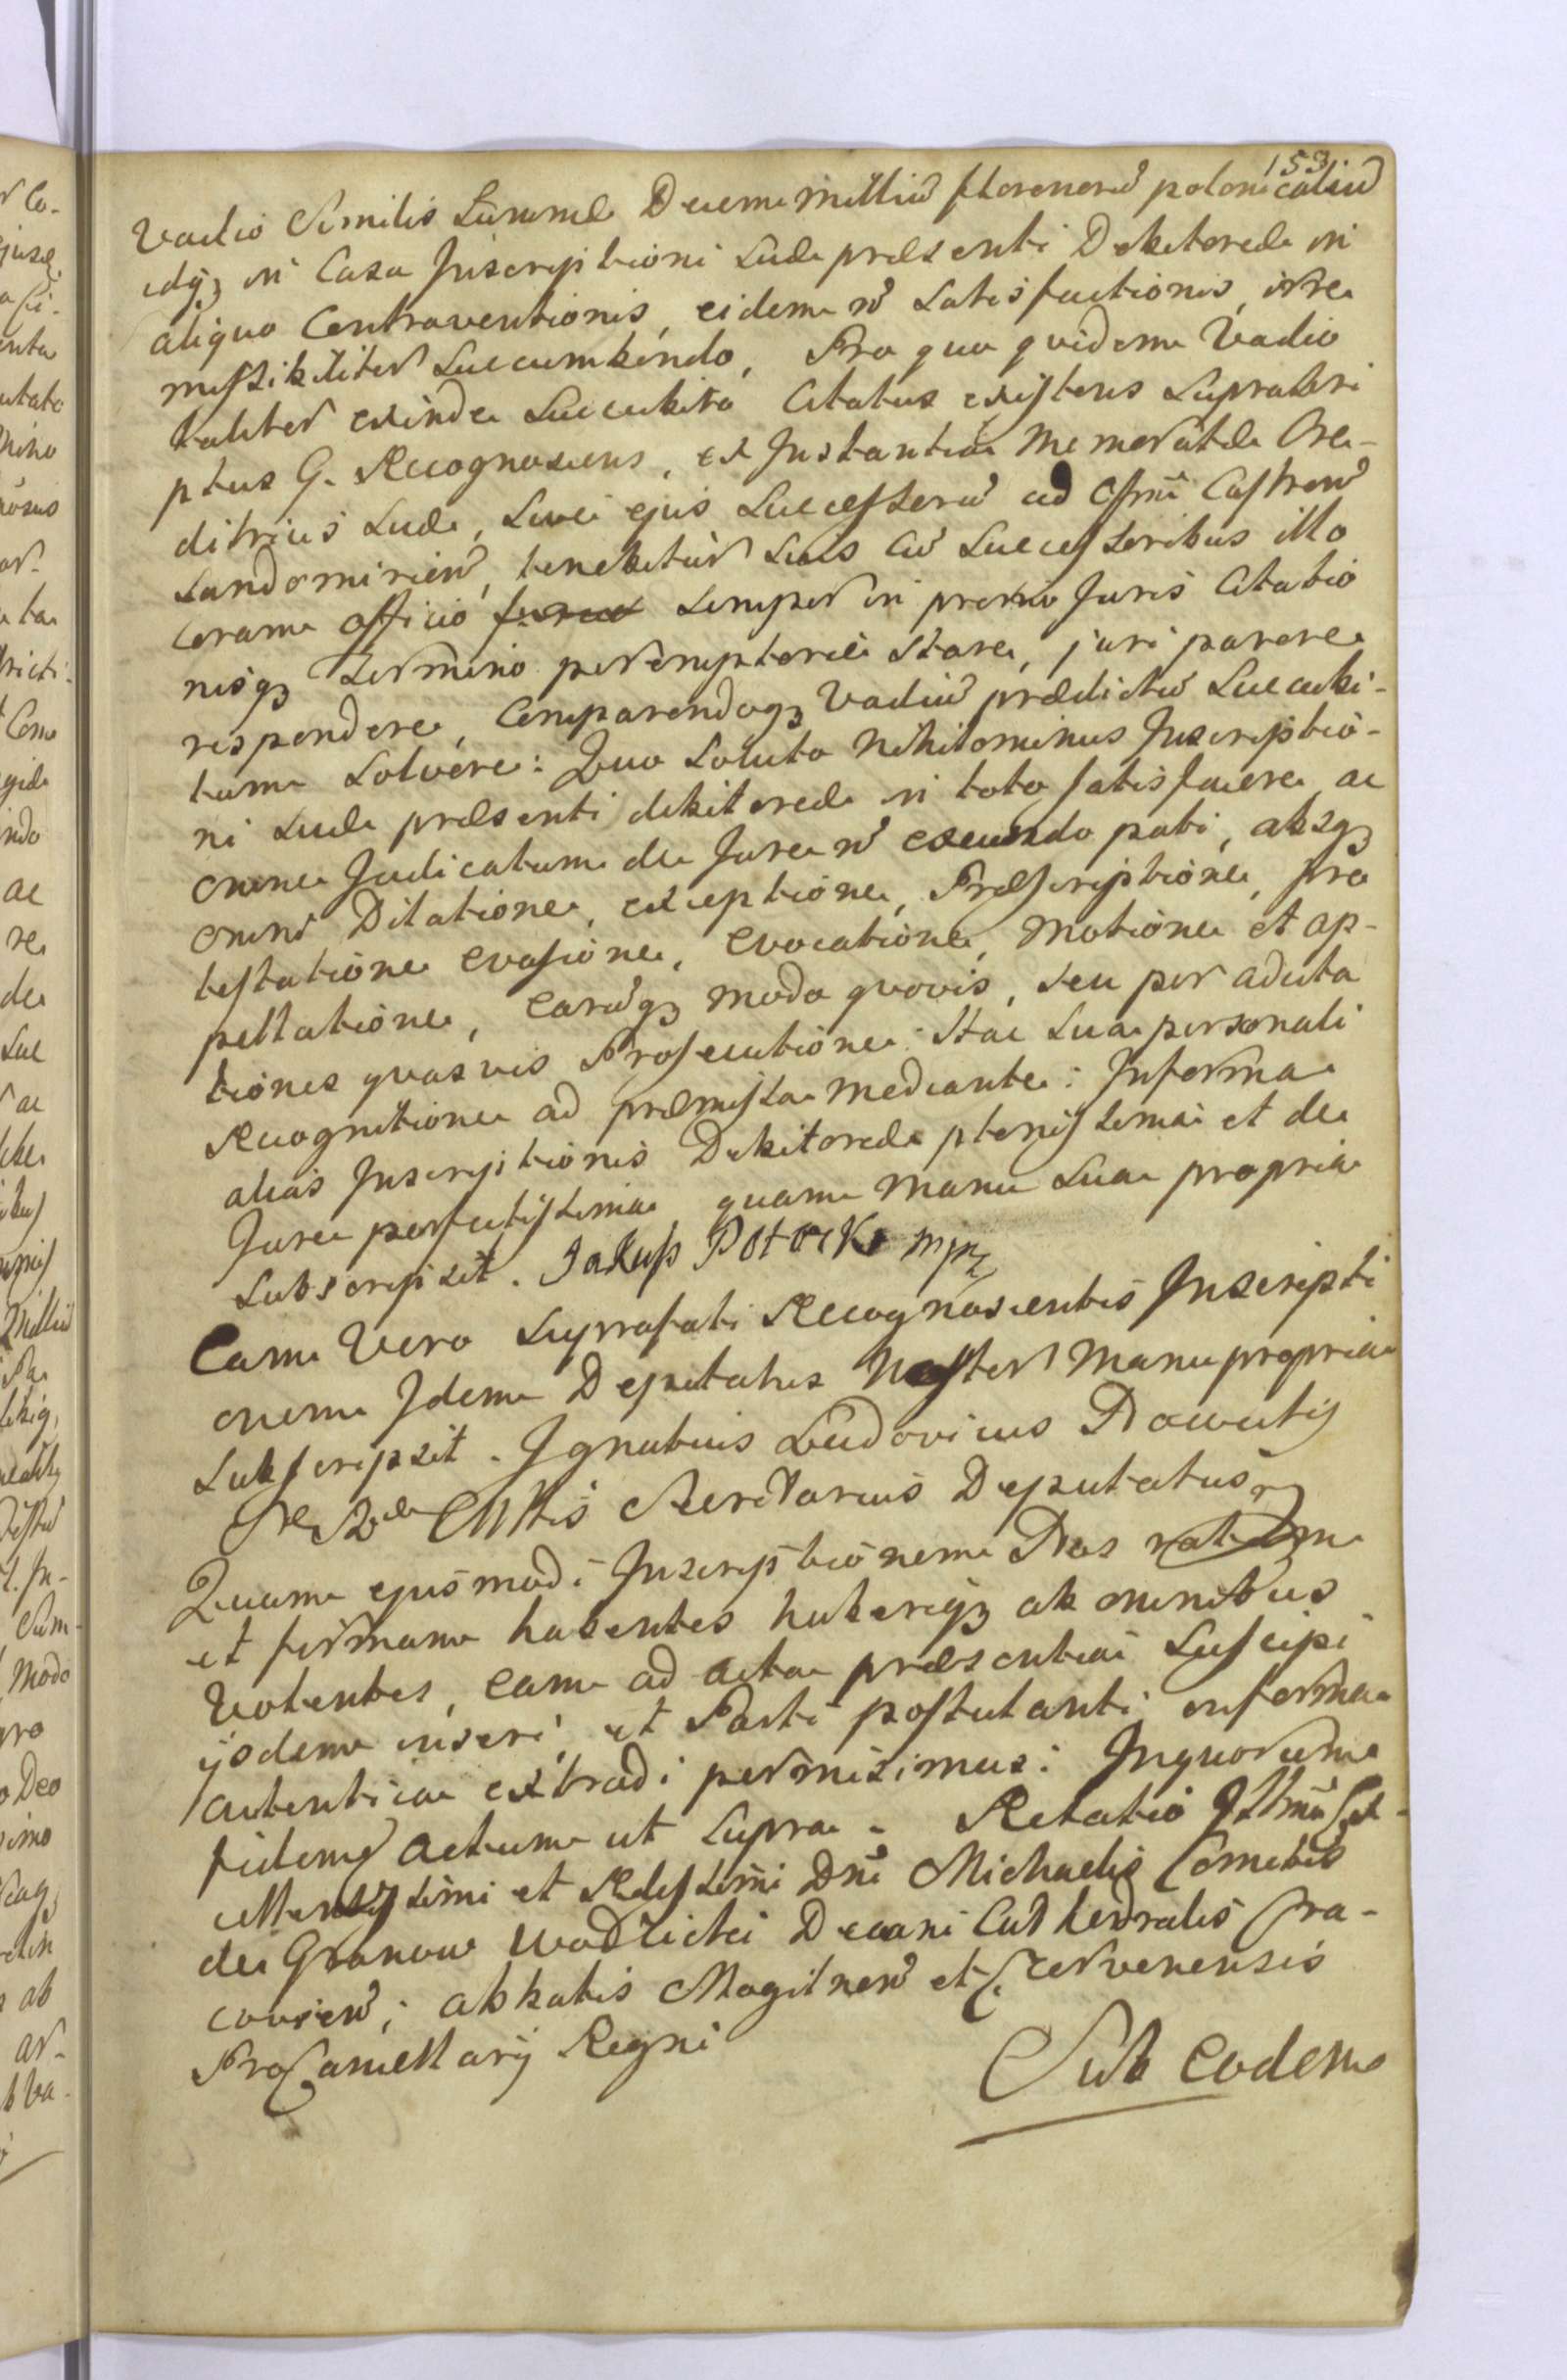 153
Vadio Similis Summæ Decem milliũ florenorũ polonicaliũ
idq3 in Casu Inscriptioni Suæ præsenti Debitoreæ in
aliquo Contraventionis, eidem nõ Satisfactionis, irre
missibiliter Succumbendo, Pro quo quidem Vadio
taliter exinde Succubito Citatus existens Suprascri
ptus G. Recognoscens, ex Instantia Memoratæ Cre-
ditricis Suæ, Sive ejus Successorũ ad Offiũ Castren̄
Sandomirien̄, tenebitur Suis cũ Successoribus illo
Coram officio Semper in primo Juris Citatio
nisq3 Termino peremptorie Stare, juri parere
respondere, Comparendoq3 Vadiũ prædictũ Succubi-
tum Solvere: Quo Soluto nihilominus Inscriptio-
ni Suæ præsenti debitoreæ in toto satisfacere ac
omne Judicatum de Jure nõ evadendo pati, absq3
omni Dilatione, exceptione, Præscriptione, pro
testatione evasione, evocatione, motione et ap-
pellatione, earũq3 modo quovis, seu per adcita
tiones quasvis Prosecutione: Hac Sua personali
Recognitione ad præmissa mediante: In forma
alias Inscriptionis Debitoreæ plenissima et de
Jure perfectissima quam manu Sua propria
Subscripsit. Jakub Potocki mpp
Eam Vero Suprafati Recognoscentis Inscripti
onem Idem Deputatus Noster Manu propria
Subscripsit. Ignatius Ludovicus Nowecky
SRM Secretarius Deputatus
Quam ejusmodi Inscriptionem Nos ratam
et firmam habentes haberiq3 ab omnibus
Volentes, eam ad acta præsentia Suscipi
ijsdem inseri, et Parti postulanti in forma
autentica extradi permisimus: In quorum
fidem Actum ut Supra. Relatio Illmi Ex-
cellentissimi et Rdssimi Dni Michaelis Comitis
de Granow Wodzicki Decani Cathedralis Cra-
covien̄; abbatis Mogilnen̄ et Czervenensis
ProCancellarij Regni
Sub eodem